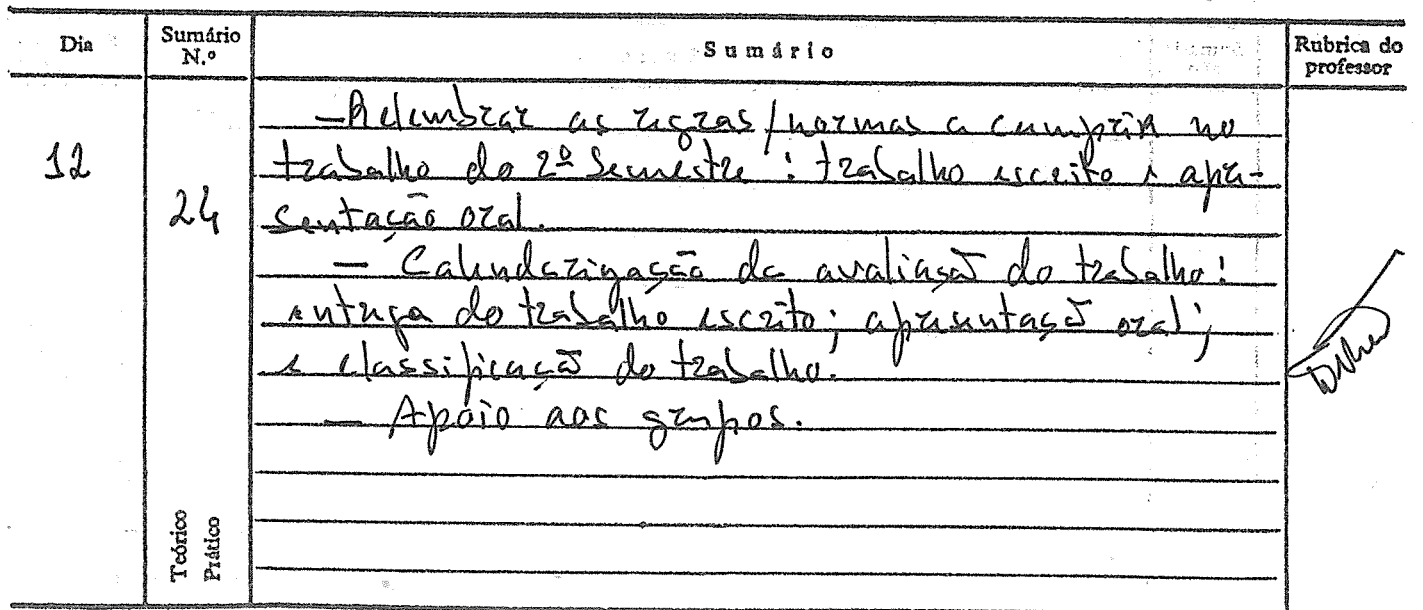 Dia Sumário N.º Sumário Rubrica do professor
— Relembrar as regras/normas a cumprir no
12 trabalho do 2º Semestre: trabalho escrito e apre-
24 sentação oral.
— Calendarização da avaliação do trabalho:
entrega do trabalho escrito; apresentação oral;
e classificação do trabalho.
— Apoio aos grupos.
Teórico
Prático